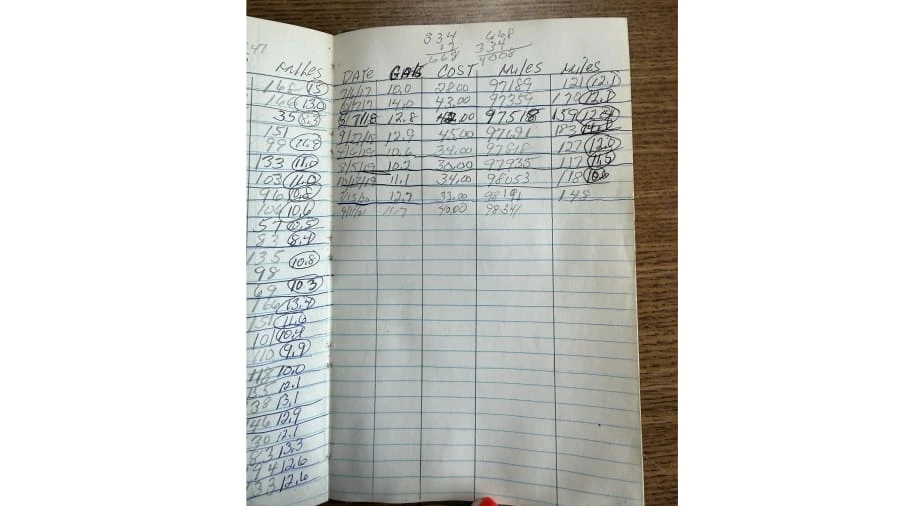 334 668
12 334
668 4008
Miles
DATE GALS COST Miles Miles
165 15
7/6/17 10.0 28.00 97189 121 12.1
166 13.0
14.0 43.00 97359 170 12.1
35 8.3
5/7/18 12.8 42.00 97518 159 12.4
151
9/27/18 12.9 45.00 97691 183
99
10.6 34.00 97818 127 12.0
133 11.0
8/5/19 10.2 30.00 97935 117 11.5
103 11.0
11.1 34.00 98053 118 10.6
96
12.7 33.00 98191 148
106 10.6
11.7 40.00 98341
57
83 8.4
135 10.8
98
69 10.3
166 13.4
151 11.6
101
110 9.9
118 10.0
12.1
38 13.1
46 12.9
30 12.1
53 13.3
94 12.6
33 12.6